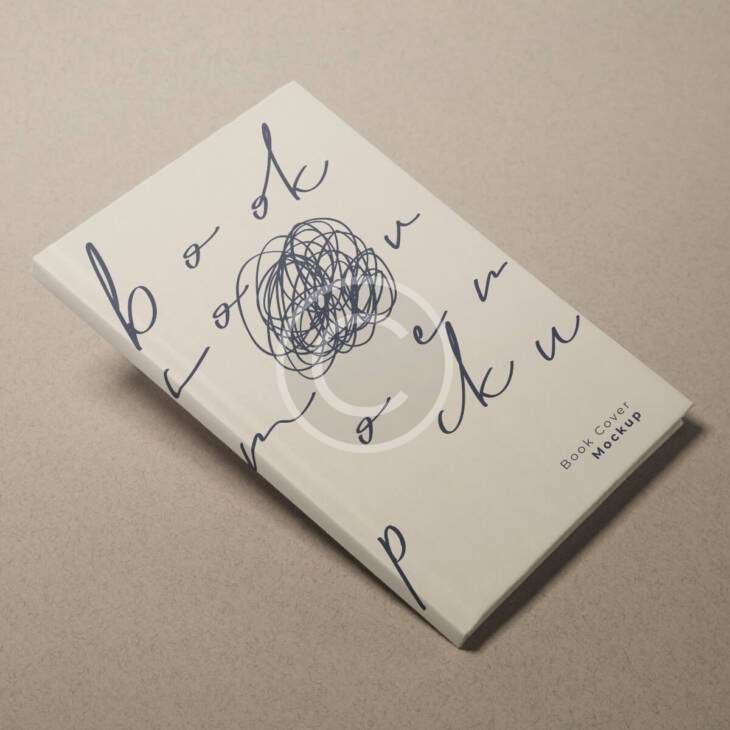 book
cov
er
mocku
p
Book Cover
Mockup